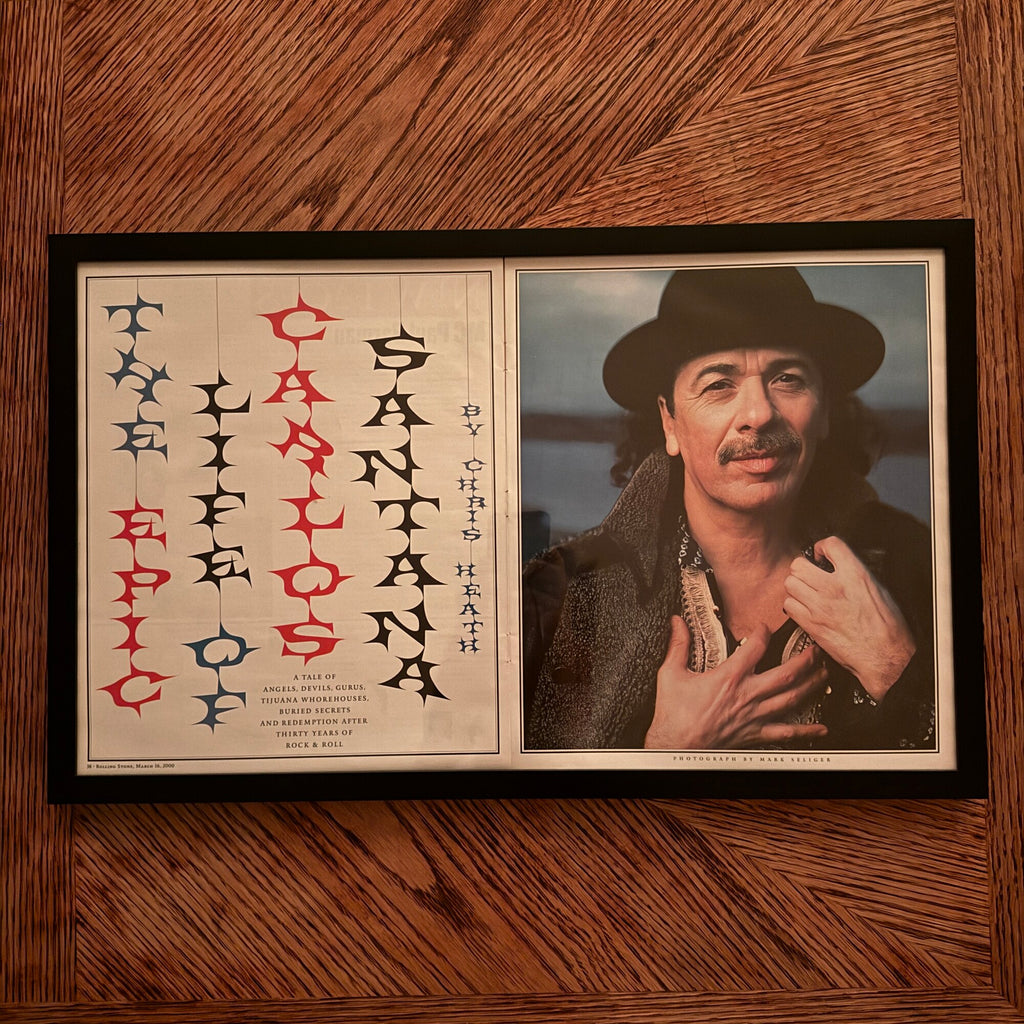 THE EPIC
LIFE OF
CARLOS
SANTANA
BY CHRIS HEATH
A TALE OF
ANGELS, DEVILS, GURUS,
TIJUANA WHOREHOUSES,
BURIED SECRETS
AND REDEMPTION AFTER
THIRTY YEARS OF
ROCK & ROLL
38 · ROLLING STONE, MARCH 16, 2000
PHOTOGRAPH BY MARK SELIGER